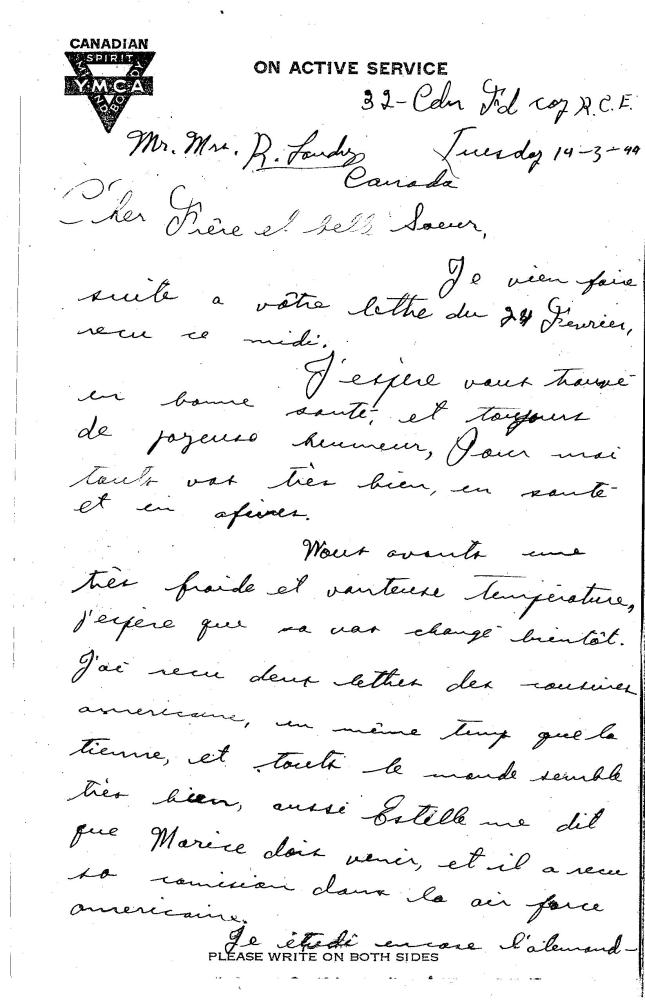 CANADIAN
SPIRIT
Y·M·C·A
MIND BODY
ON ACTIVE SERVICE
32-Cdn Fd coy R.C.E.
Mr. Mrs. R. Landry Tuesday 14-3-44
Canada
Cher Frère et belle Soeur,
Je vien faire
suite a vôtre lettre du 24 Fevrier,
recu ce midi.
J'espère vous trouvé
en bonne santé, et toujours
de joyeuse heumeur, Pour moi
touts vas très bien, en santé
et en
Nous avonts une
très froide et vanteuse température,
j'espère que sa vas changé bientôt.
J'ai recu deux lettres des cousines
americaine, en même temp que la
tienne, et touts le monde semble
très bien, aussi Estelle me dit
que Marice dois venir, et il a recu
sa comision dans la air force
americaine.
Je étudi encore l'alemand-
PLEASE WRITE ON BOTH SIDES